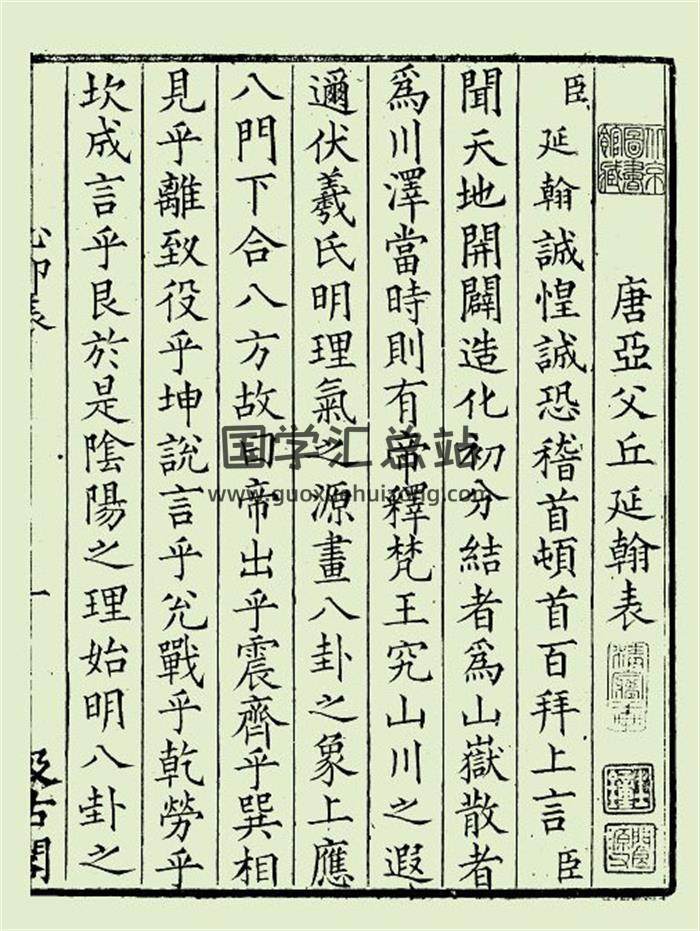 唐亞父丘延翰表
臣延翰誠惶誠恐稽首頓首百拜上言臣
聞天地開闢造化初分結者爲山嶽散者
爲川澤當時則有帝釋梵王究山川之遐
邇伏羲氏明理氣之源畫八卦之象上應
八門下合八方故曰帝出乎震齊乎巽相
見乎離致役乎坤說言乎兊戰乎乾勞乎
坎成言乎艮於是陰陽之理始明八卦之
北京圖書館藏
国学汇总站
www.guoxuehuizong.com
汲古閣